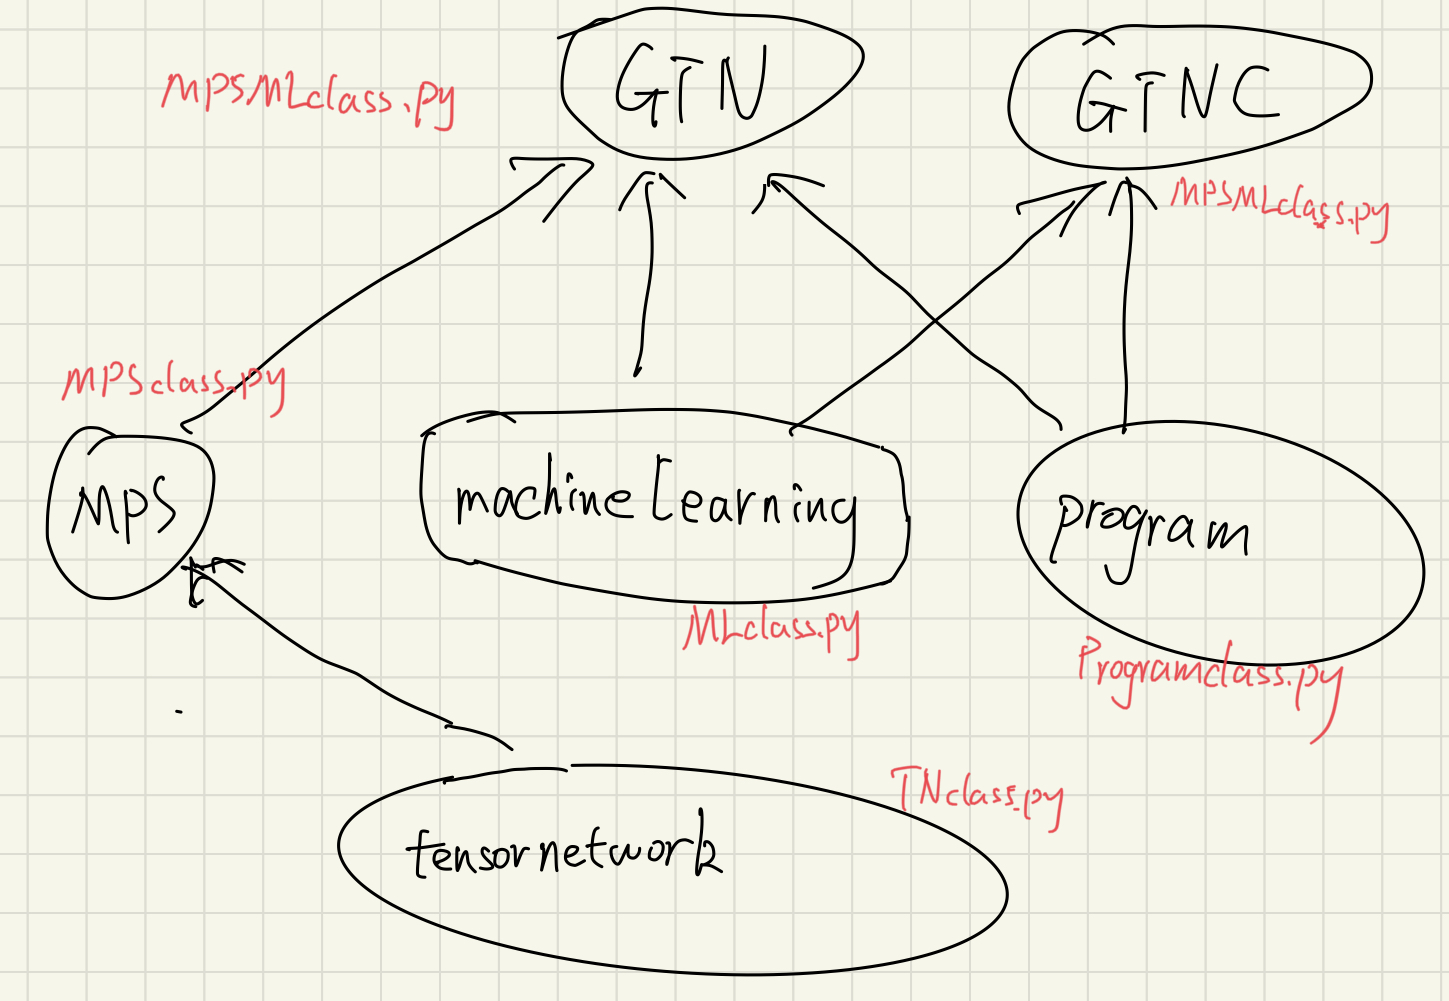 GTN
GTNC
MPSMLclass.py
MPSMLclass.py
MPSclass.py
MPS
machine learning
program
MLclass.py
Programclass.py
TNclass.py
tensor network